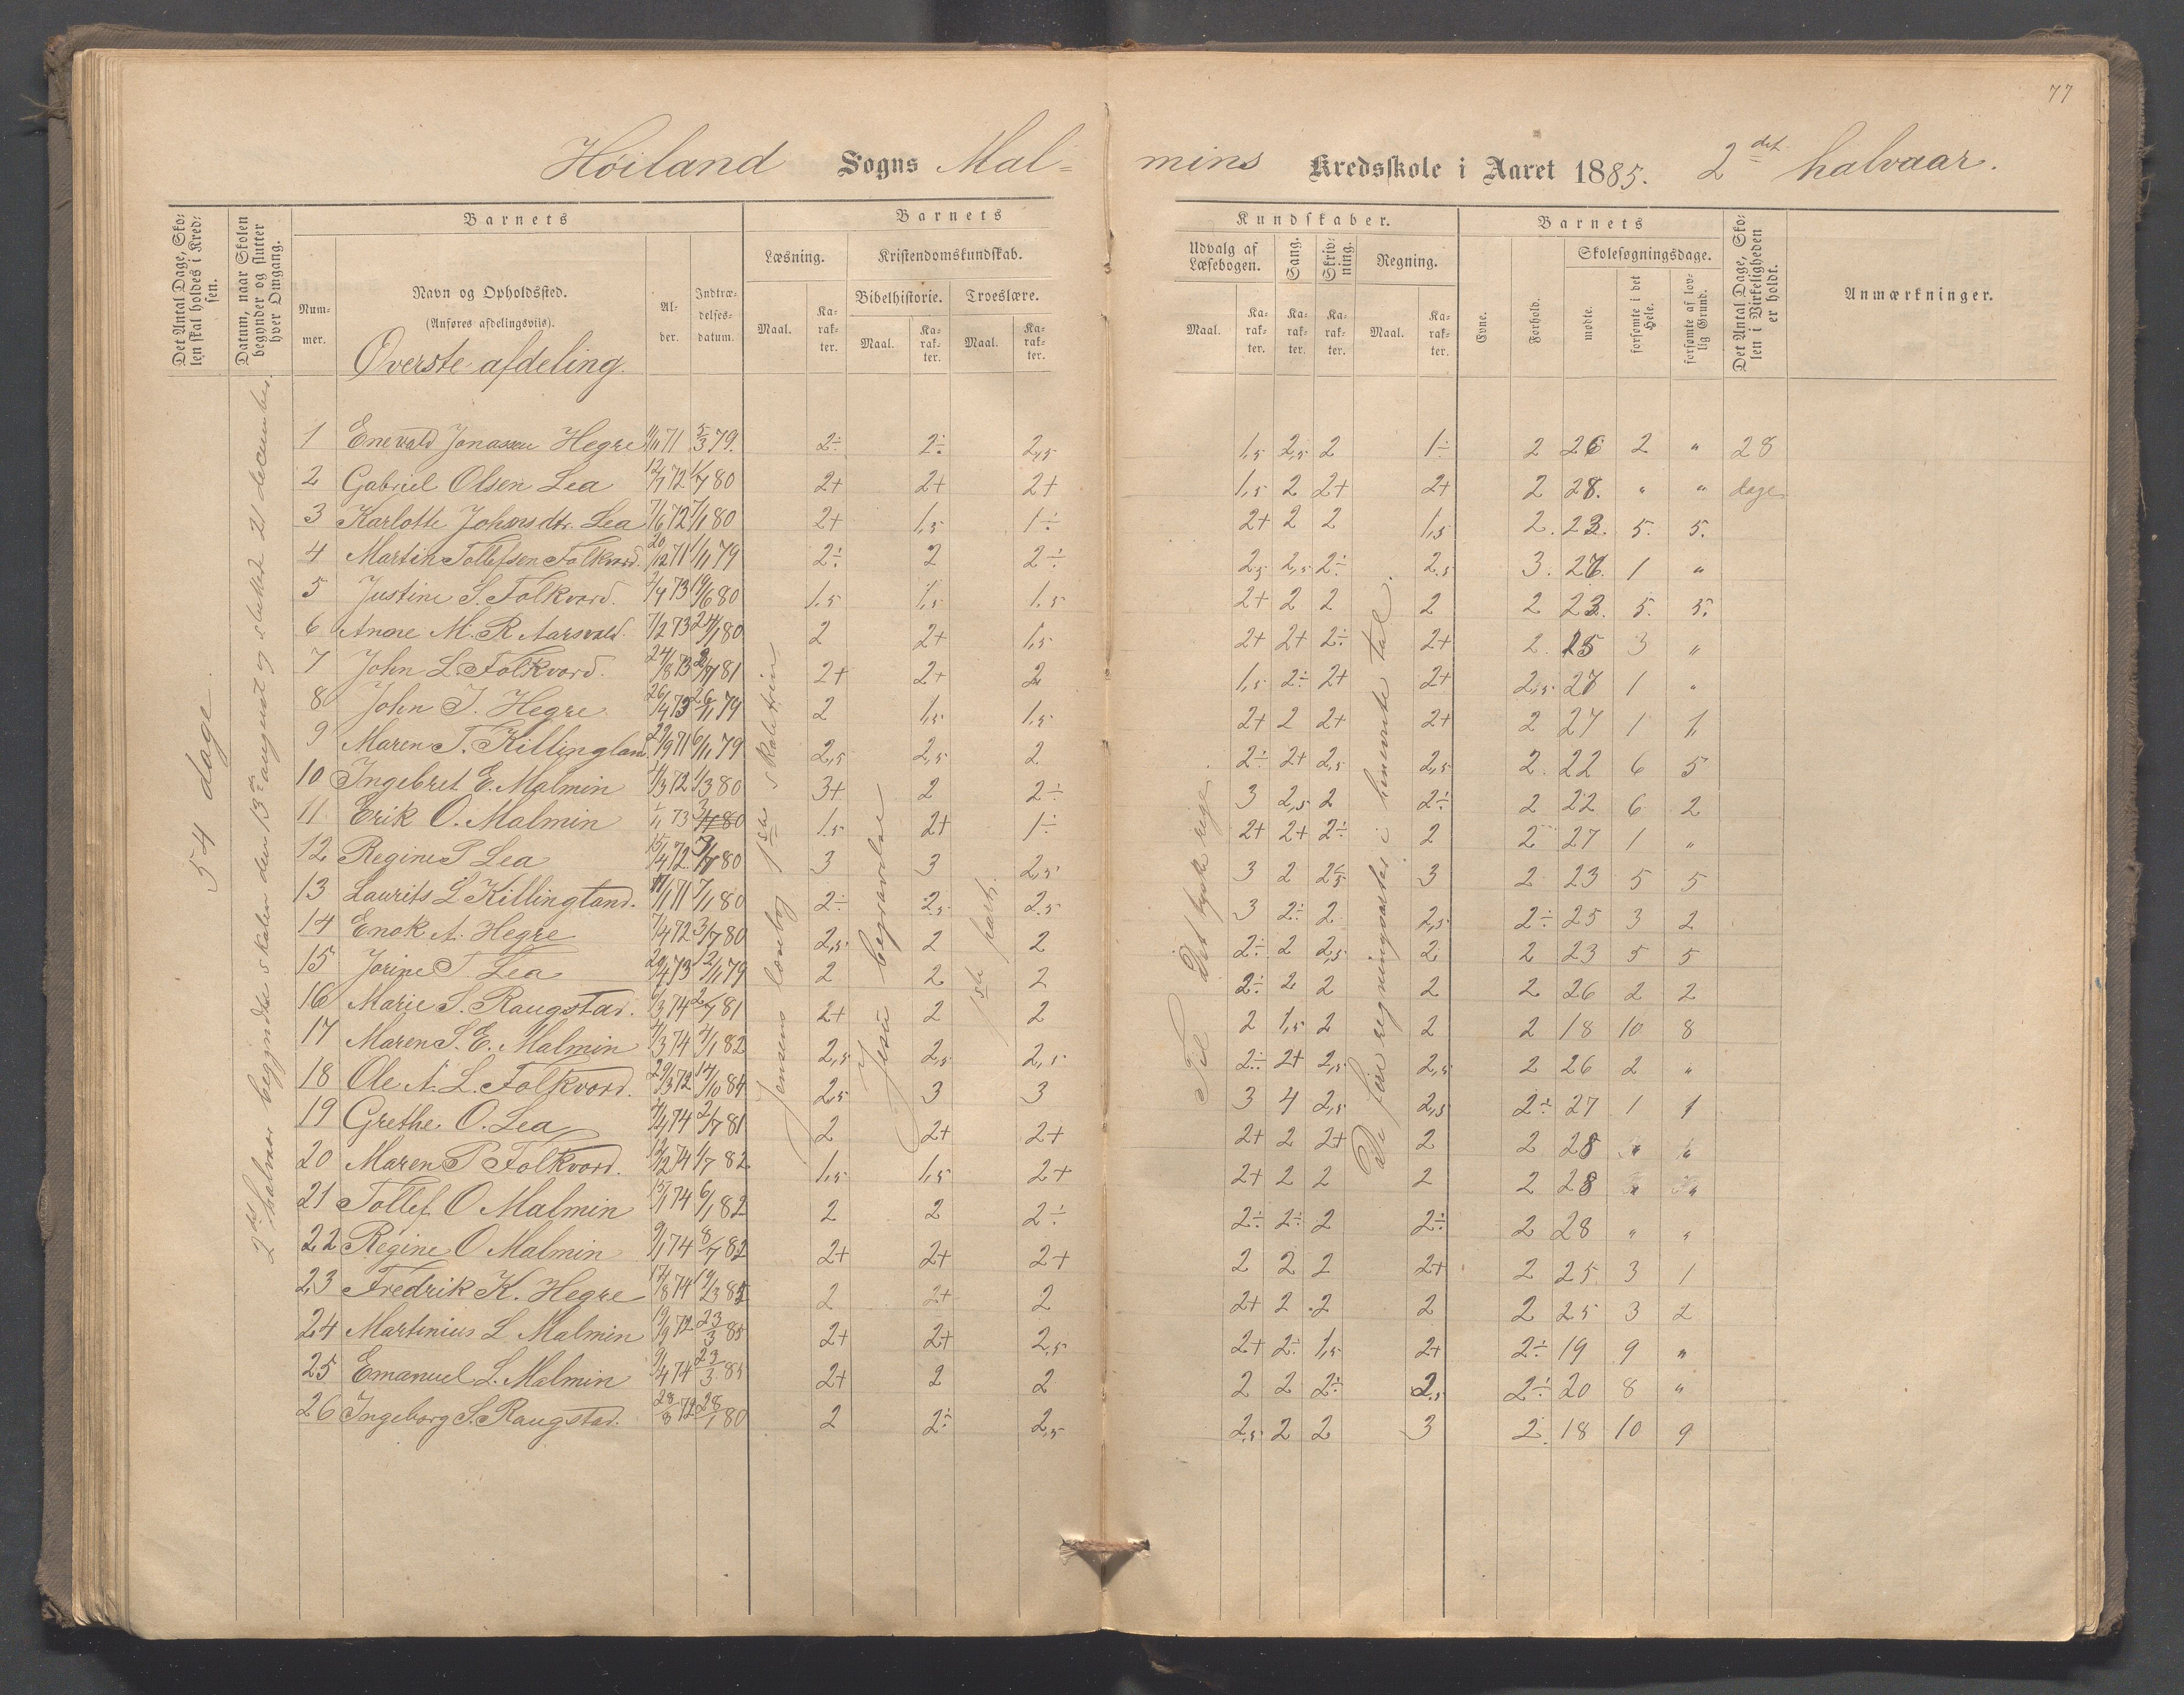 77
Høiland Sogns Mal= mins Kredsskole i Aaret 1885. 2det halvaar.
Det Antal Dage, Skolen skal holdes i Kredsen.
Datum, naar Skolen begynder og slutter hver Omgang.
Barnets
Nummer.
Navn og Opholdssted.
(Anføres afdelingsviis).
Alder.
Indtrædelsesdatum.
Barnets Kundskaber.
Læsning. Kristendomskundskab.
Bibelhistorie. Troeslære.
Maal. Karakter. Maal. Karakter. Maal. Karakter.
Udvalg af Læsebogen. Sang. Skrivning. Regning.
Maal. Karakter. Karakter. Karakter. Maal. Karakter.
Barnets
Evne. Forhold.
Skolesøgningsdage.
mødte. forsømte i det Hele. forsømte af lovlig Grund.
Det Antal Dage, Skolen i Virkeligheden er holdt.
Anmærkninger.
Øverste afdeling.
54 dage.
2det halvaar begyndte skolen den 13de august og sluttet 21 december.
Jensens læsebog 1ste skoletrin
Jesu begravelse
1ste part.
Til Det tyske rige.
De fire regningsarter i benævnte tal.
1 Enevald Jonassen Hegre 11/11 71 5/3 79. 2÷ 2÷ 2,5 1,5 2,5 2 1÷ 2 26 2 " 28
2 Gabriel Olsen Lea 12/7 72 1/7 80 2+ 2+ 2+ 1,5 2 2+ 2+ 2 28. " " dage
3 Karlotte Johnsdtr. Lea 7/6 72 7/1 80 2+ 1,5 1÷ 2+ 2 2 1,5 2. 23. 5. 5.
4 Martin Tollefsen Folkvord. 20/12 71 1/11 79 2÷ 2 2÷ 2,5 2,5 2÷ 2,5 3. 27. 1 "
5 Justine S. Folkvord. 2/4 73 19/6 80 1,5 1,5 1,5 2+ 2 2 2 2 23. 5. 5.
6 Anne M. R. Aarsvold. 7/2 73 24/1 80 2 2+ 1,5 2+ 2+ 2÷ 2+ 2. 25 3 "
7 John L. Folkvord. 24/8 73 2/7 81 2+ 2+ 2 1,5 2÷ 2+ 2+ 2,5 27 1 "
8 John J. Hegre 26/4 73 26/11 79 2 1,5 1,5 2+ 2 2+ 2+ 2 27 1 1
9 Maren T. Killingland 29/9 71 6/11 79 2,5 2,5 2 2÷ 2+ 2,5 2,5 2. 22 6 5
10 Ingebret E. Malmin 4/3 72 1/3 80 3+ 2 2÷ 3 2,5 2 2÷ 2 22 6 2
11 Erik O. Malmin 1/11 73 1,5 2+ 1÷ 2+ 2+ 2÷ 2 2 27 1 "
12 Regine P Lea 15/4 72. 3/7 80 3 3 2,5 3 2 2,5 3 2 23 5 5
13 Laurits L Killingland. 71 7/1 80 2÷ 2,5 2,5 3 2÷ 2 2,5 2÷ 25 3 2
14 Enok A. Hegre 7/4 72 3/7 80 2,5 2 2 2÷ 2 2,5 2 2 23 5 5
15 Jorine T. Lea 20/4 73 12/11 79 2 2 2 2÷ 2 2 2 2 26 2 2
16 Marie S. Raugstad. 6/3 74 2/7 81 2+ 2 2 2 1,5 2 2 2 18 10 8
17 Maren S. E. Malmin 4/3 74 4/1 82 2,5 2,5 2,5 2÷ 2+ 2,5 2,5 2 26 2 "
18 Ole A. L. Folkvord. 29/3 72 14/10 84 2,5 3 3 3 4 2,5 2,5 2÷ 27 1 1
19 Grethe O. Lea 74 2/7 81 2 2+ 2+ 2+ 2 2+ 2 2 28 " "
20 Maren P Folkvord. 12/2 74 1/7 82 1,5 1,5 2+ 2+ 2 2 2 2 28 " "
21 Tollef O Malmin 15/1 74 6/1 82 2 2 2÷ 2÷ 2÷ 2 2÷ 2 28 " "
22 Regine O Malmin 9/1 74 8/7 82 2+ 2+ 2+ 2 2 2 2+ 2 25 3 1
23 Fredrik K. Hegre 17/8 74 2 2+ 2 2+ 2 2 2 2 25 3 2
24 Martinius L Malmin 72 23/3 85 2+ 2+ 2,5 2+ 2÷ 1,5 2+ 2÷ 19 9 "
25 Emanuel L. Malmin 9/4 74 23/3 85 2+ 2 2 2 2 2÷ 2,5 2÷ 20 8 "
26 Ingeborg S. Raugstad. 28/8 72 28/1 80 2 2÷ 2,5 2,5 2 2 3 2. 18 10 9